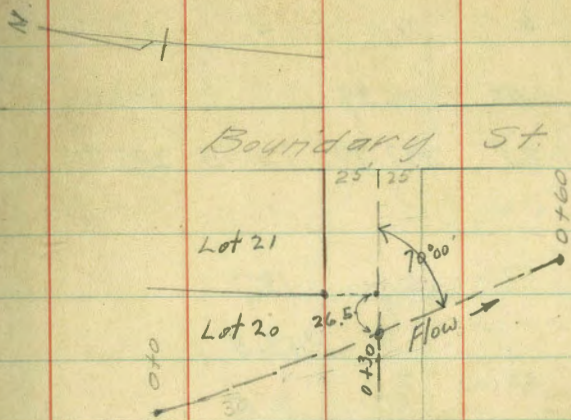 N.
Boundary St.
25' 25
Lot 21
70°00'
0+60
Lot 20
26.5
Flow
0+0
0+30
30